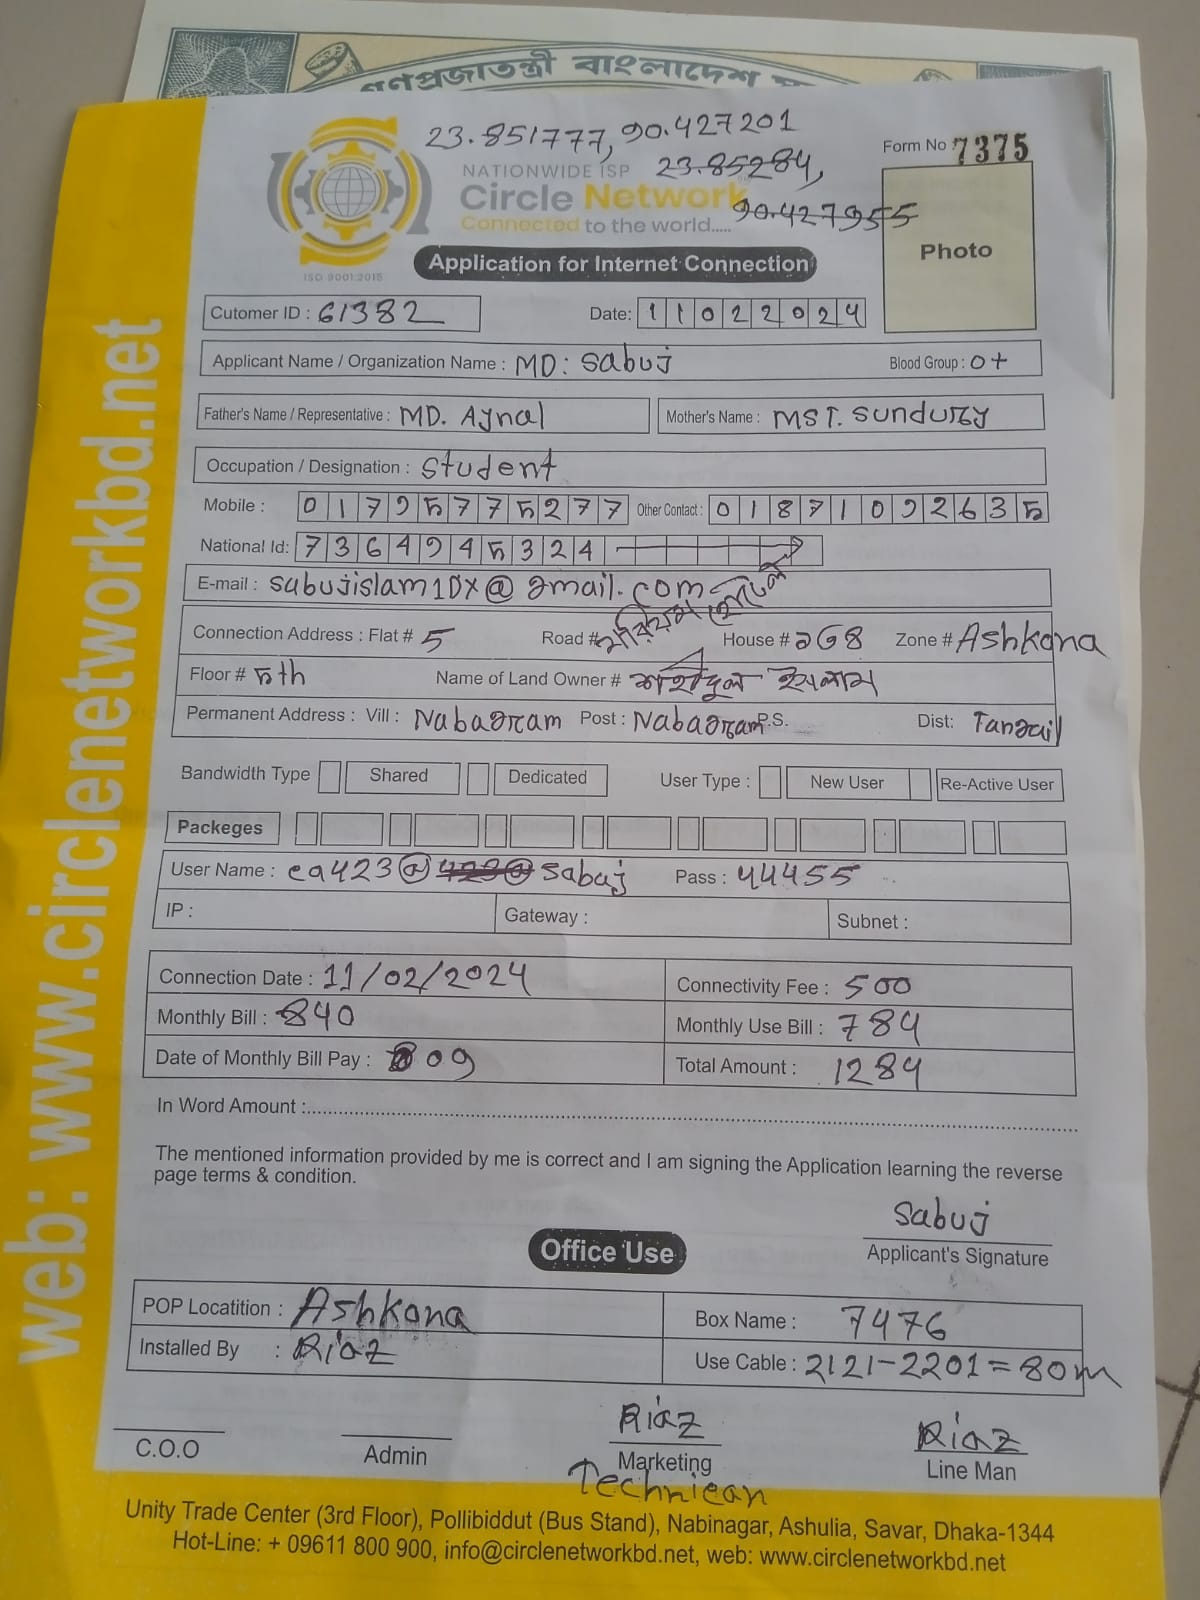 গণপ্রজাতন্ত্রী বাংলাদেশ
23.851777, 90.427201
23.85284,
90.427955
Form No 7375
NATIONWIDE ISP
Circle Network
Connected to the world.....
ISO 9001:2015
Photo
Application for Internet Connection
Cutomer ID : 61382 Date: 11022024
Applicant Name / Organization Name : MD: Sabuj Blood Group : O+
Father's Name / Representative : MD. Ajnal Mother's Name : MST. Sundury
Occupation / Designation : Student
Mobile : 01795775277 Other Contact : 01871092635
National Id: 7364945324
E-mail : sabujislam1DX@gmail.com
Connection Address : Flat # 5 Road # House # 268 Zone # Ashkona
Floor # 5th Name of Land Owner # শহীদুল ইসলাম
Permanent Address : Vill : Nabagram Post : Nabagram P.S. Dist: Tangail
Bandwidth Type Shared Dedicated User Type : New User Re-Active User
Packeges
User Name : ca423@ 423@ sabuj Pass : 44455
IP : Gateway : Subnet :
Connection Date : 11/02/2024 Connectivity Fee : 500
Monthly Bill : 840 Monthly Use Bill : 784
Date of Monthly Bill Pay : 09 Total Amount : 1284
In Word Amount :
The mentioned information provided by me is correct and I am signing the Application learning the reverse
page terms & condition.
Sabuj
Applicant's Signature
Office Use
POP Locatition : Ashkona Box Name : 7476
Installed By : Riaz Use Cable : 2121-2201=80m
Riaz Riaz
C.O.O Admin Marketing Line Man
Technican
Unity Trade Center (3rd Floor), Pollibiddut (Bus Stand), Nabinagar, Ashulia, Savar, Dhaka-1344
Hot-Line: + 09611 800 900, info@circlenetworkbd.net, web: www.circlenetworkbd.net
web: www.circlenetworkbd.net